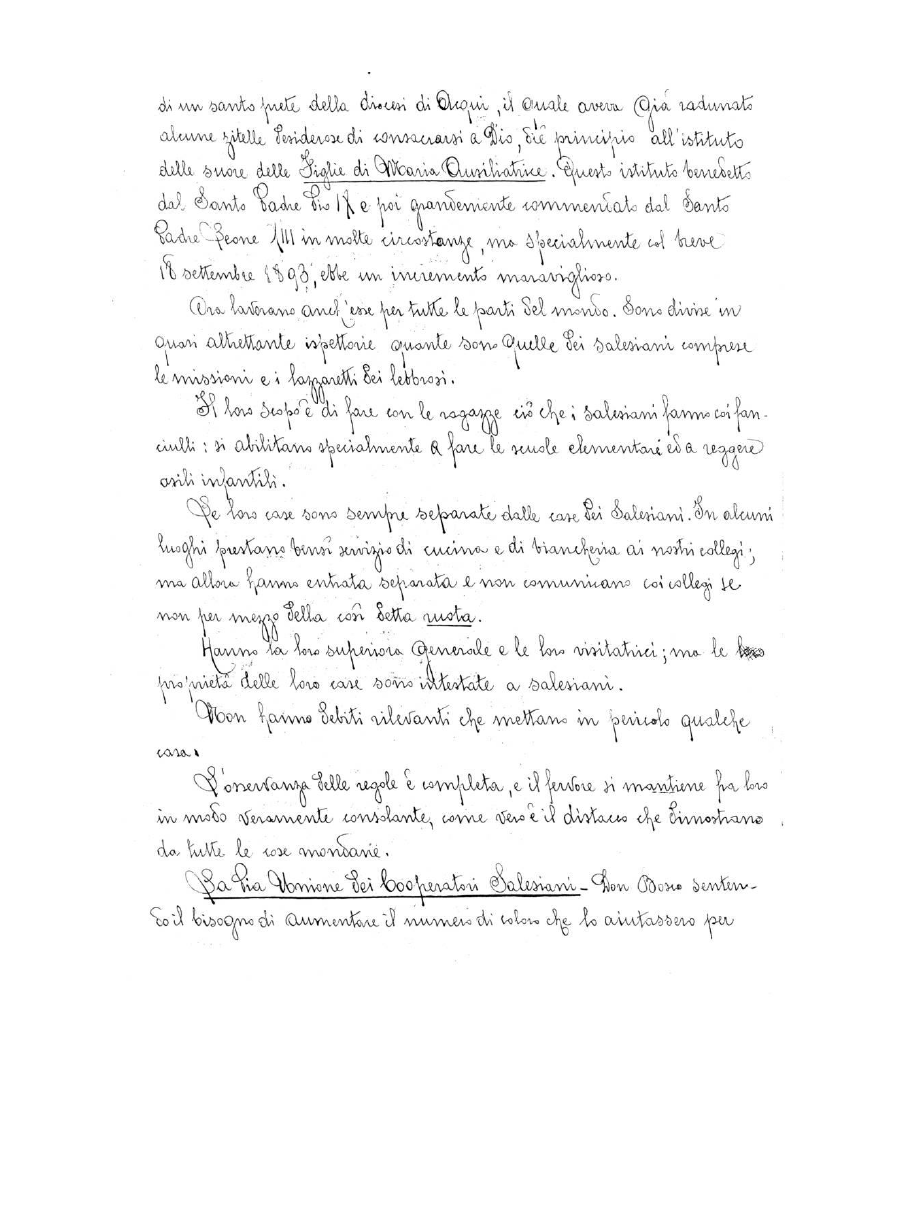 di un santo prete della diocesi di Acqui, il quale aveva già radunato
alcune zitelle desiderose di consacrarsi a Dio, diè principio all'istituto
delle suore delle Figlie di Maria Ausiliatrice. Questo istituto benedetto
dal Santo Padre Pio IX e poi grandemente commendato dal Santo
Padre Leone XIII in molte circostanze, ma specialmente col breve
18 settembre 1893, ebbe un incremento maraviglioso.
Ora lavorano anch'esse per tutte le parti del mondo. Sono divise in
quasi altrettante ispettorie quante sono quelle dei salesiani comprese
le missioni e i lazzaretti dei lebbrosi.
Il loro scopo è di fare con le ragazze ciò che i salesiani fanno coi fan-
ciulli: si abilitano specialmente a fare le scuole elementari ed a reggere
asili infantili.
Le loro case sono sempre separate dalle case dei Salesiani. In alcuni
luoghi prestano bensì servizio di cucina e di biancheria ai nostri collegi;
ma allora hanno entrata separata e non comunicano coi collegi se
non per mezzo della così detta ruota.
Hanno la loro superiora generale e le loro visitatrici; ma le
proprietà delle loro case sono intestate a salesiani.
Non hanno debiti rilevanti che mettano in pericolo qualche
casa.
L'osservanza delle regole è completa, e il fervore si mantiene fra loro
in modo veramente consolante, come vero è il distacco che dimostrano
da tutte le cose mondane.
La Pia Unione dei Cooperatori Salesiani - Don Bosco senten-
do il bisogno di aumentare il numero di coloro che lo aiutassero per